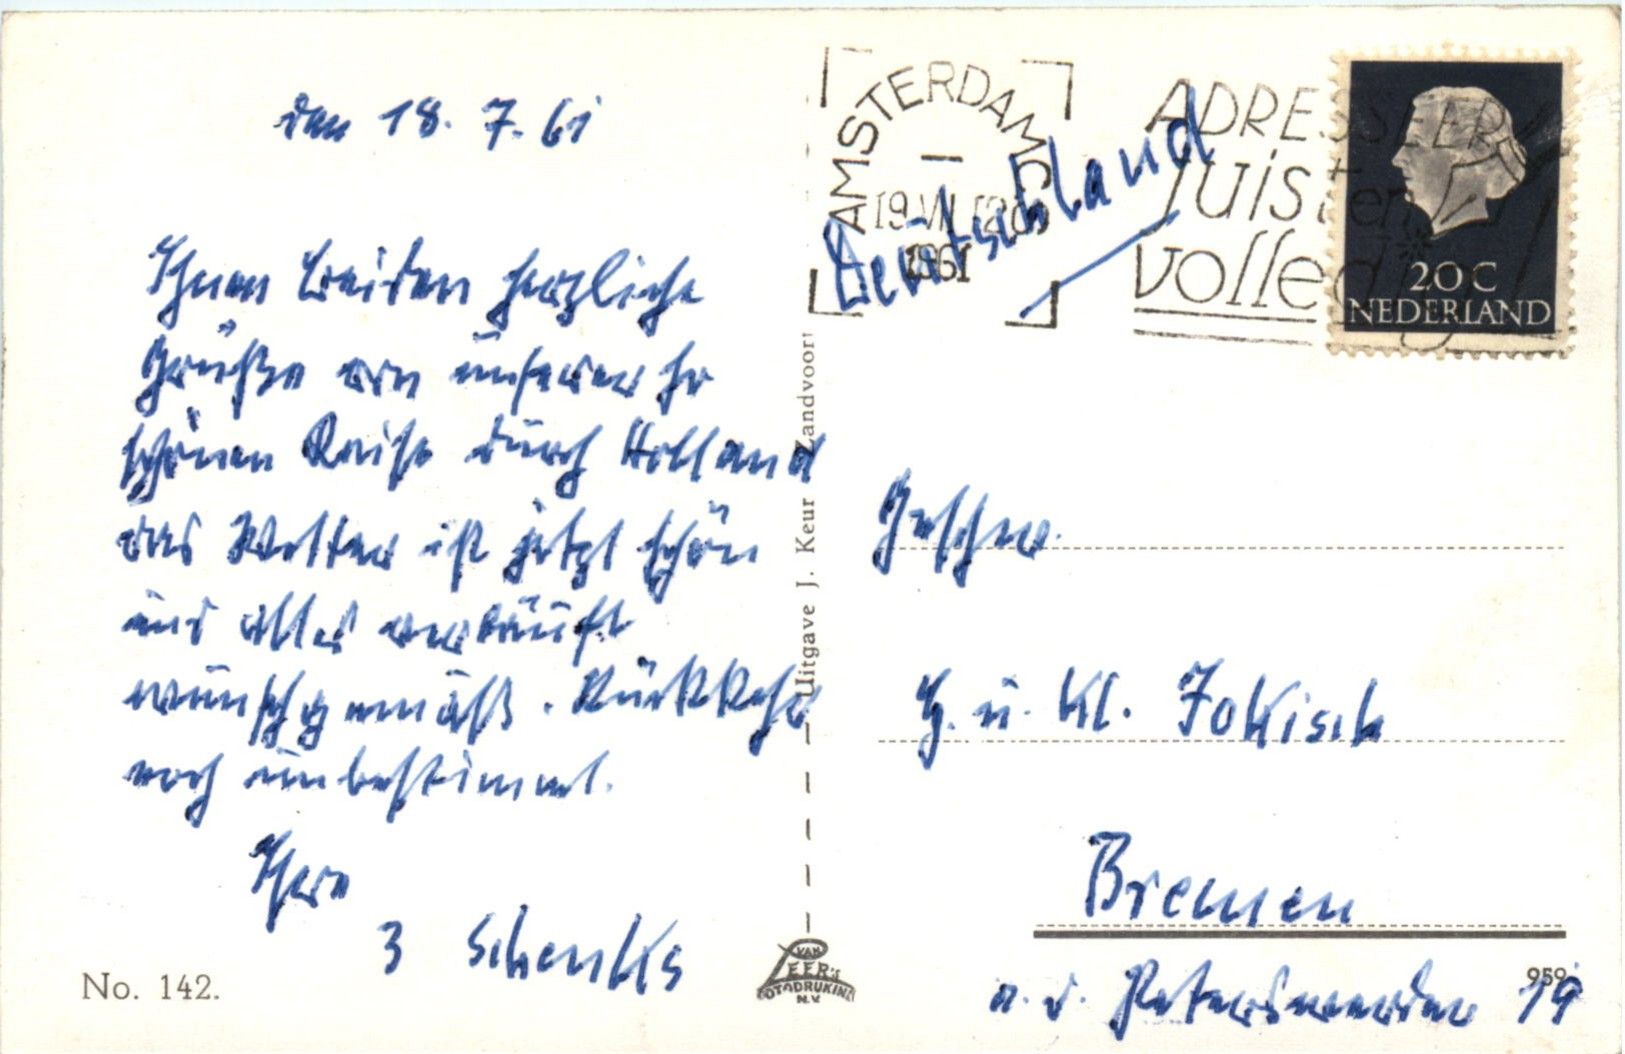 den 18. 7. 61
Ihnen beiden herzliche
Grüße von unserer so
schönen Reise durch Holland
das Wetter ist jetzt schön
und alles verläuft
wunschgemäß. Rückkehr
noch unbestimmt.
Ihre
3 Schenks
No. 142.
Uitgave J. Keur Zandvoort
VAN
LEER'S
FOTODRUKIND
N.V.
AMSTERDAM
19 VII 12
1961
ADRESSEER
juist en
volledig
20 C
NEDERLAND
Deutschland
Geschw.
H. u. Kl. Jokisch
Bremen
a. d. Peterswerder 19
959